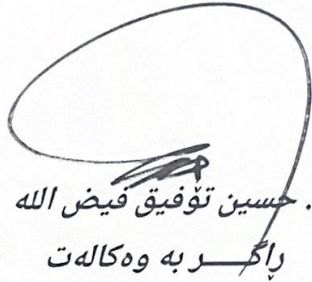 . حسین تۆفیق فیض الله
ڕاگـــر بە وەکالەت